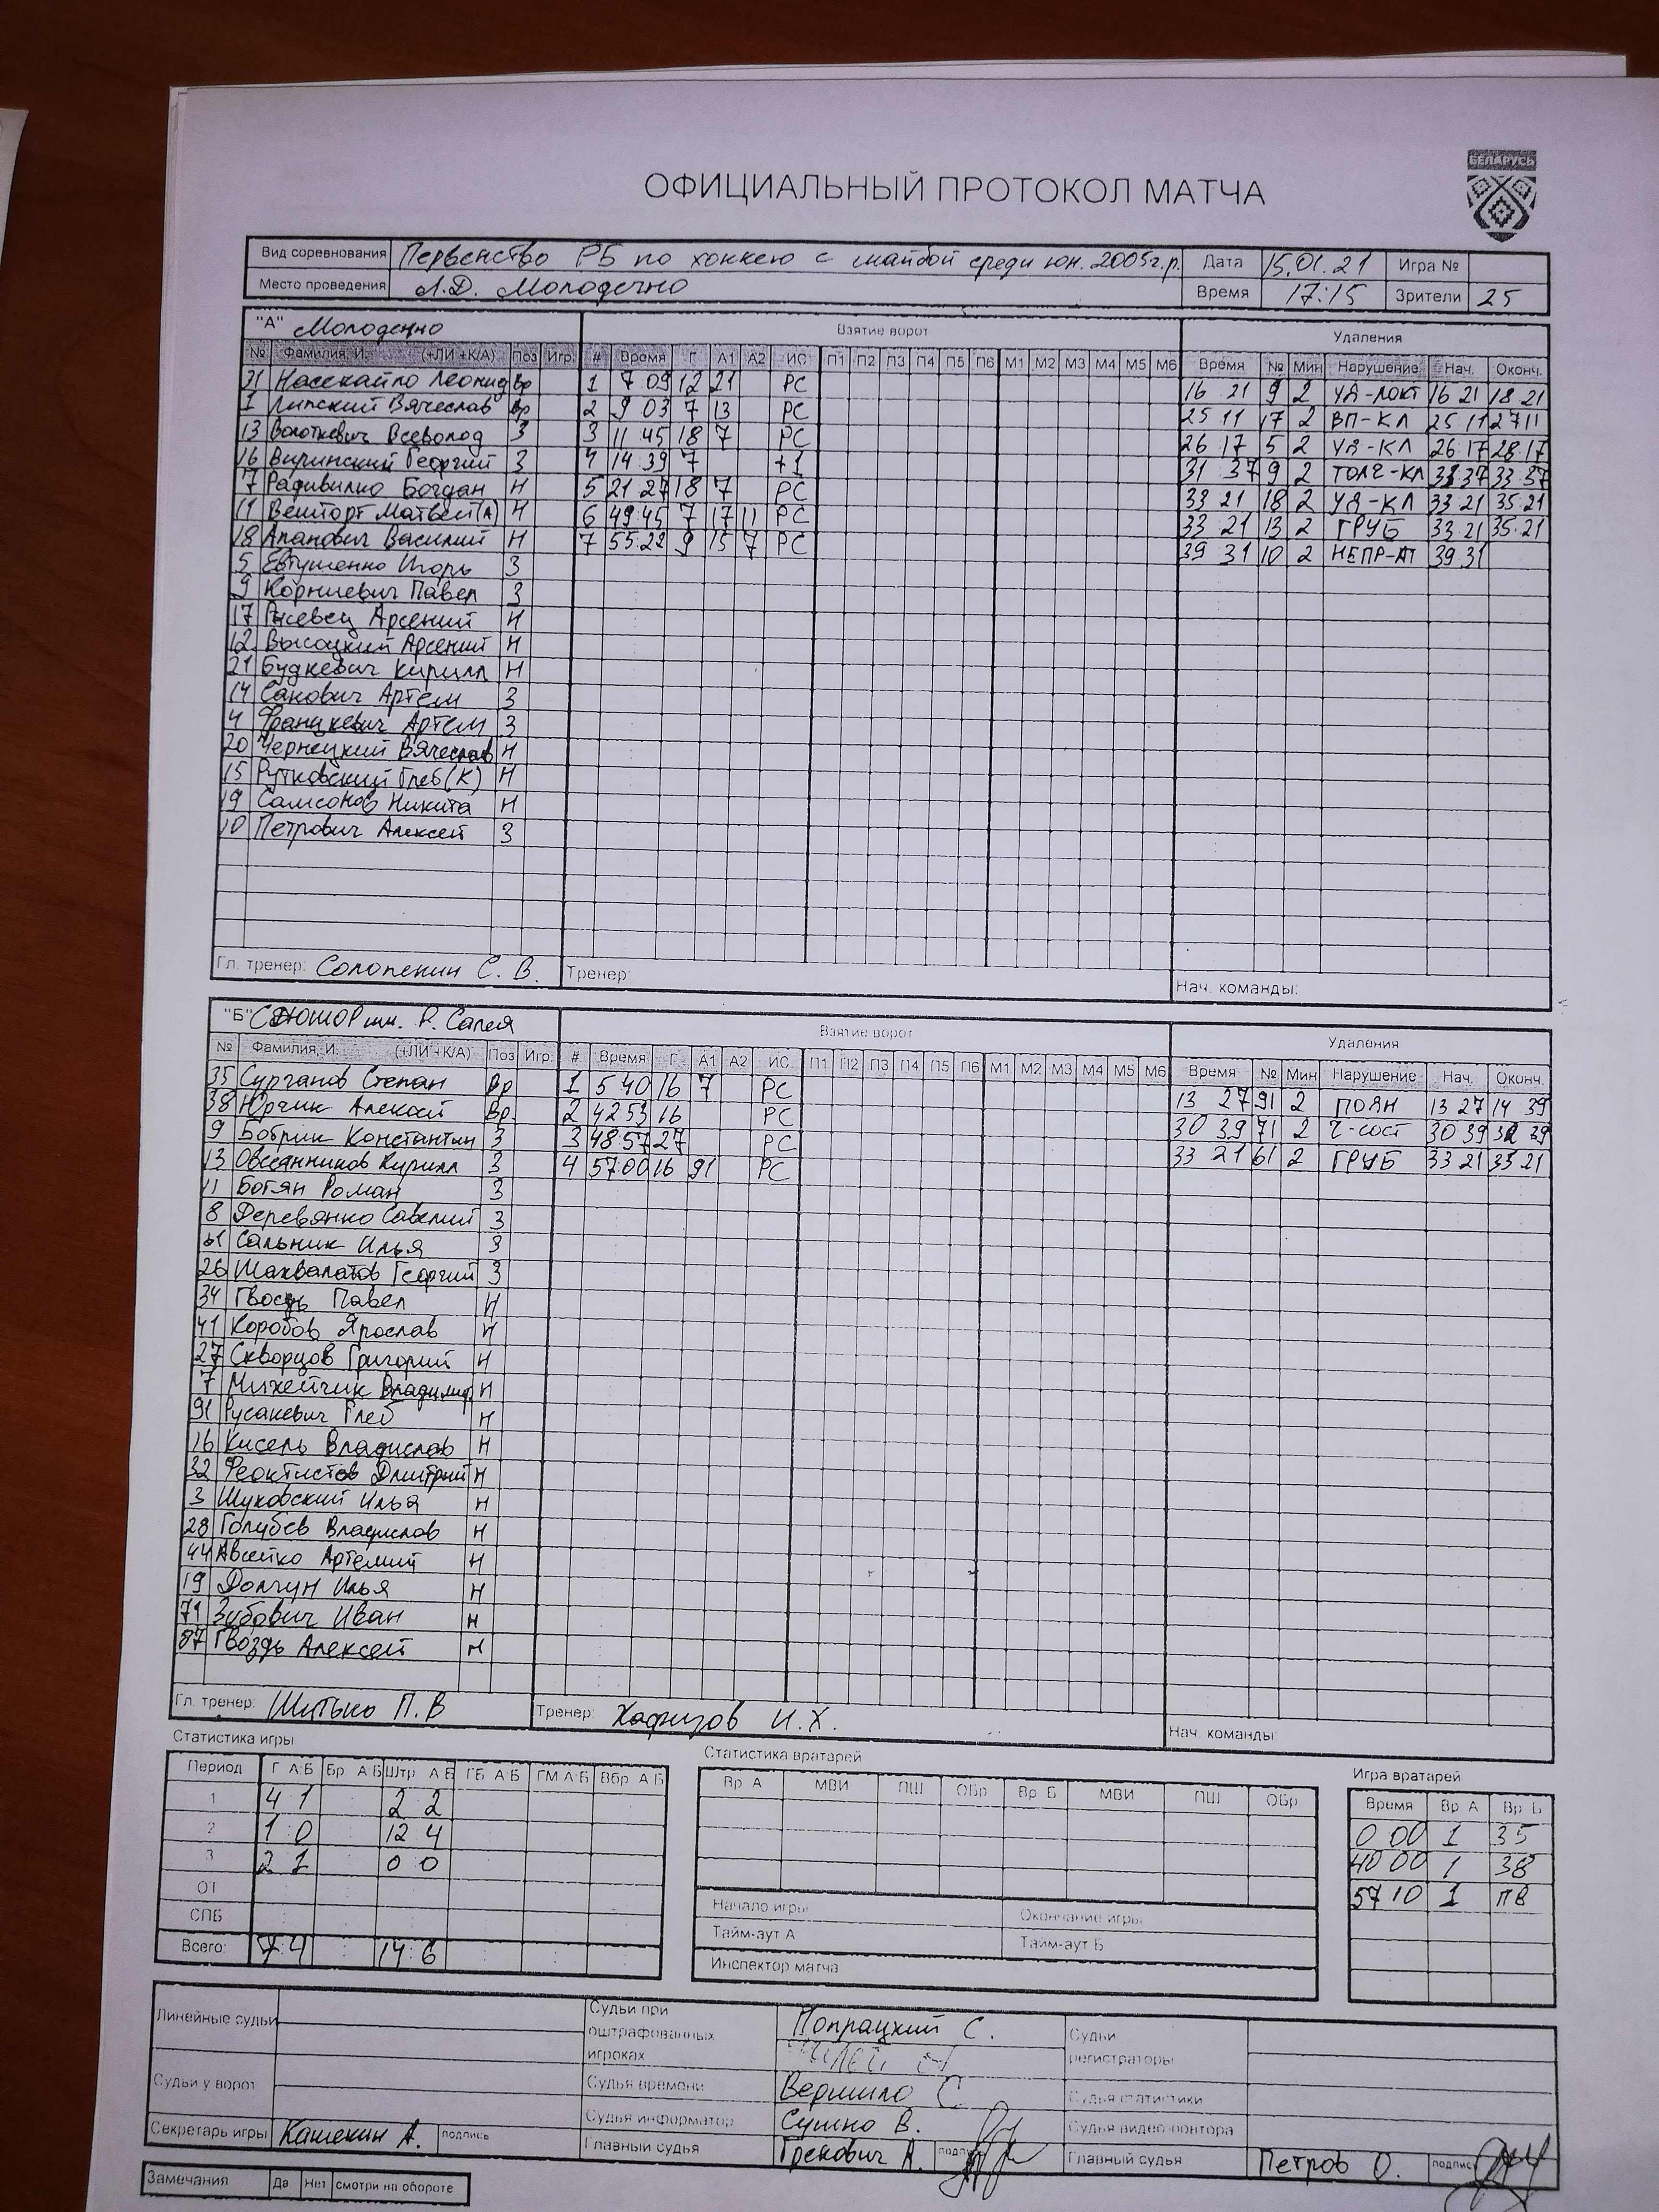 БЕЛАРУСЬ
ОФИЦИАЛЬНЫЙ ПРОТОКОЛ МАТЧА
Вид соревнования Первенство РБ по хоккею с шайбой среди юн. 2005г.р. Дата 15.01.21 Игра №
Место проведения Л.Д. Молодечно Время 17:15 Зрители 25
"А" Молодечно Взятие ворот Удаления
№ Фамилия, И. (+ЛИ +К/А) Поз Игр. # Время Г А1 А2 ИС П1 П2 П3 П4 П5 П6 М1 М2 М3 М4 М5 М6 Время № Мин Нарушение Нач. Оконч.
31 Насекайло Леонид Вр 1 7 09 12 21 РС 16 21 9 2 УД-ЛОКТ 16 21 18 21
1 Липский Вячеслав Вр 2 9 03 7 13 РС 25 11 17 2 ВП-КЛ 25 11 27 11
13 Волоткевич Всеволод З 3 11 45 18 7 РС 26 17 5 2 УД-КЛ 26 17 28 17
16 Виринский Георгий З 4 14 39 7 +1 31 37 9 2 ТОЛЧ-КЛ 31 37 33 37
7 Радивилко Богдан Н 5 21 27 18 7 РС 33 21 18 2 УД-КЛ 33 21 35 21
11 Вешторт Матвей(А) Н 6 49 45 7 17 11 РС 33 21 13 2 ГРУБ 33 21 35 21
18 Апанович Василий Н 7 55 22 9 15 7 РС 39 31 10 2 НЕПР-АТ 39 31
5 Евтушенко Игорь З
9 Корниевич Павел З
17 Гусевец Арсений Н
12 Высоцкий Арсений Н
21 Будкевич Кирилл Н
14 Санович Артем З
4 Францкевич Артем З
20 Чернецкий Вячеслав Н
15 Рутковский Глеб(К) Н
19 Самсонов Никита Н
10 Петрович Алексей З
Гл. тренер: Солопекин С. В. Тренер: Нач. команды:
"Б" СДЮШОР им. Р. Салея Взятие ворот Удаления
№ Фамилия, И. (+ЛИ +К/А) Поз Игр. # Время Г А1 А2 ИС П1 П2 П3 П4 П5 П6 М1 М2 М3 М4 М5 М6 Время № Мин Нарушение Нач. Оконч.
35 Сурганов Степан Вр 1 5 40 16 7 РС 13 27 91 2 ПОДН 13 27 14 39
38 Юрчик Алексей Вр. 2 42 53 16 РС 30 39 71 2 Ч-СОСТ 30 39 32 39
9 Бобрик Константин З 3 48 57 27 РС 33 21 61 2 ГРУБ 33 21 35 21
13 Овсянников Кирилл З 4 57 00 16 91 РС
11 Ботян Роман З
8 Деревянко Савелий З
61 Сальник Илья З
26 Шахвалатов Георгий З
34 Гвоздь Павел Н
41 Коробов Ярослав Н
27 Скворцов Григорий Н
7 Михейчик Владимир Н
91 Русакевич Глеб Н
16 Кисель Владислав Н
32 Феоктистов Дмитрий Н
3 Шуковский Илья Н
28 Голубев Владислав Н
44 Авсейко Артемий Н
19 Долгун Илья Н
71 Зубович Иван Н
87 Гвоздь Алексей Н
Гл. тренер: Шитько П.В Тренер: Хафизов И.Х. Нач. команды:
Статистика игры Статистика вратарей Игра вратарей
Период Г А:Б Бр А:Б Штр А:Б ГБ А:Б ГМ А:Б Вбр А:Б Вр А МВИ ПШ ОБр Вр Б МВИ ПШ ОБр Время Вр А Вр Б
1 4 1 2 2 0 00 1 35
2 1 0 12 4 40 00 1 38
3 2 0 0 57 10 1 ПВ
ОТ
СПБ
Всего: 7:4 14:6
Начало игры Окончание игры
Тайм-аут А Тайм-аут Б
Инспектор матча
Линейные судьи Судьи при оштрафованных игроках Попрацкий С. Судьи регистраторы
Судьи у ворот Судья времени Вершило С Судья статистики
Судья информатор Сушко В. Судья видео-повтора
Секретарь игры Кашекин А. подпись Главный судья Гренович А. подпись Главный судья Петров О. подпись
Замечания Да Нет смотри на обороте